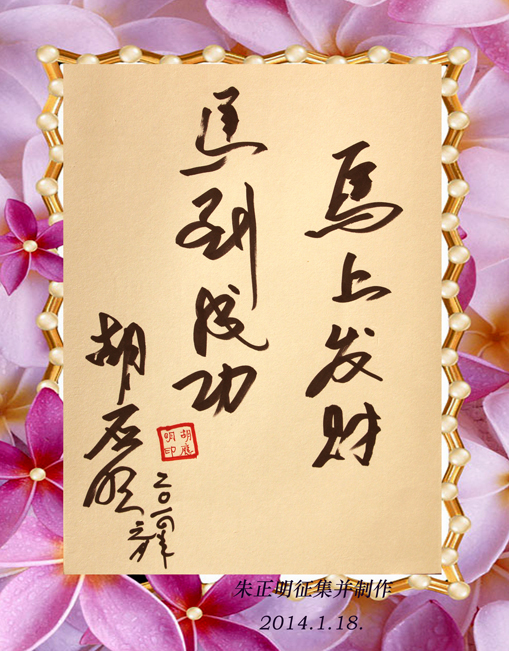 馬上发财
馬到成功
胡应明
二〇一四年
胡應明印
朱正明征集并制作
2014.1.18.